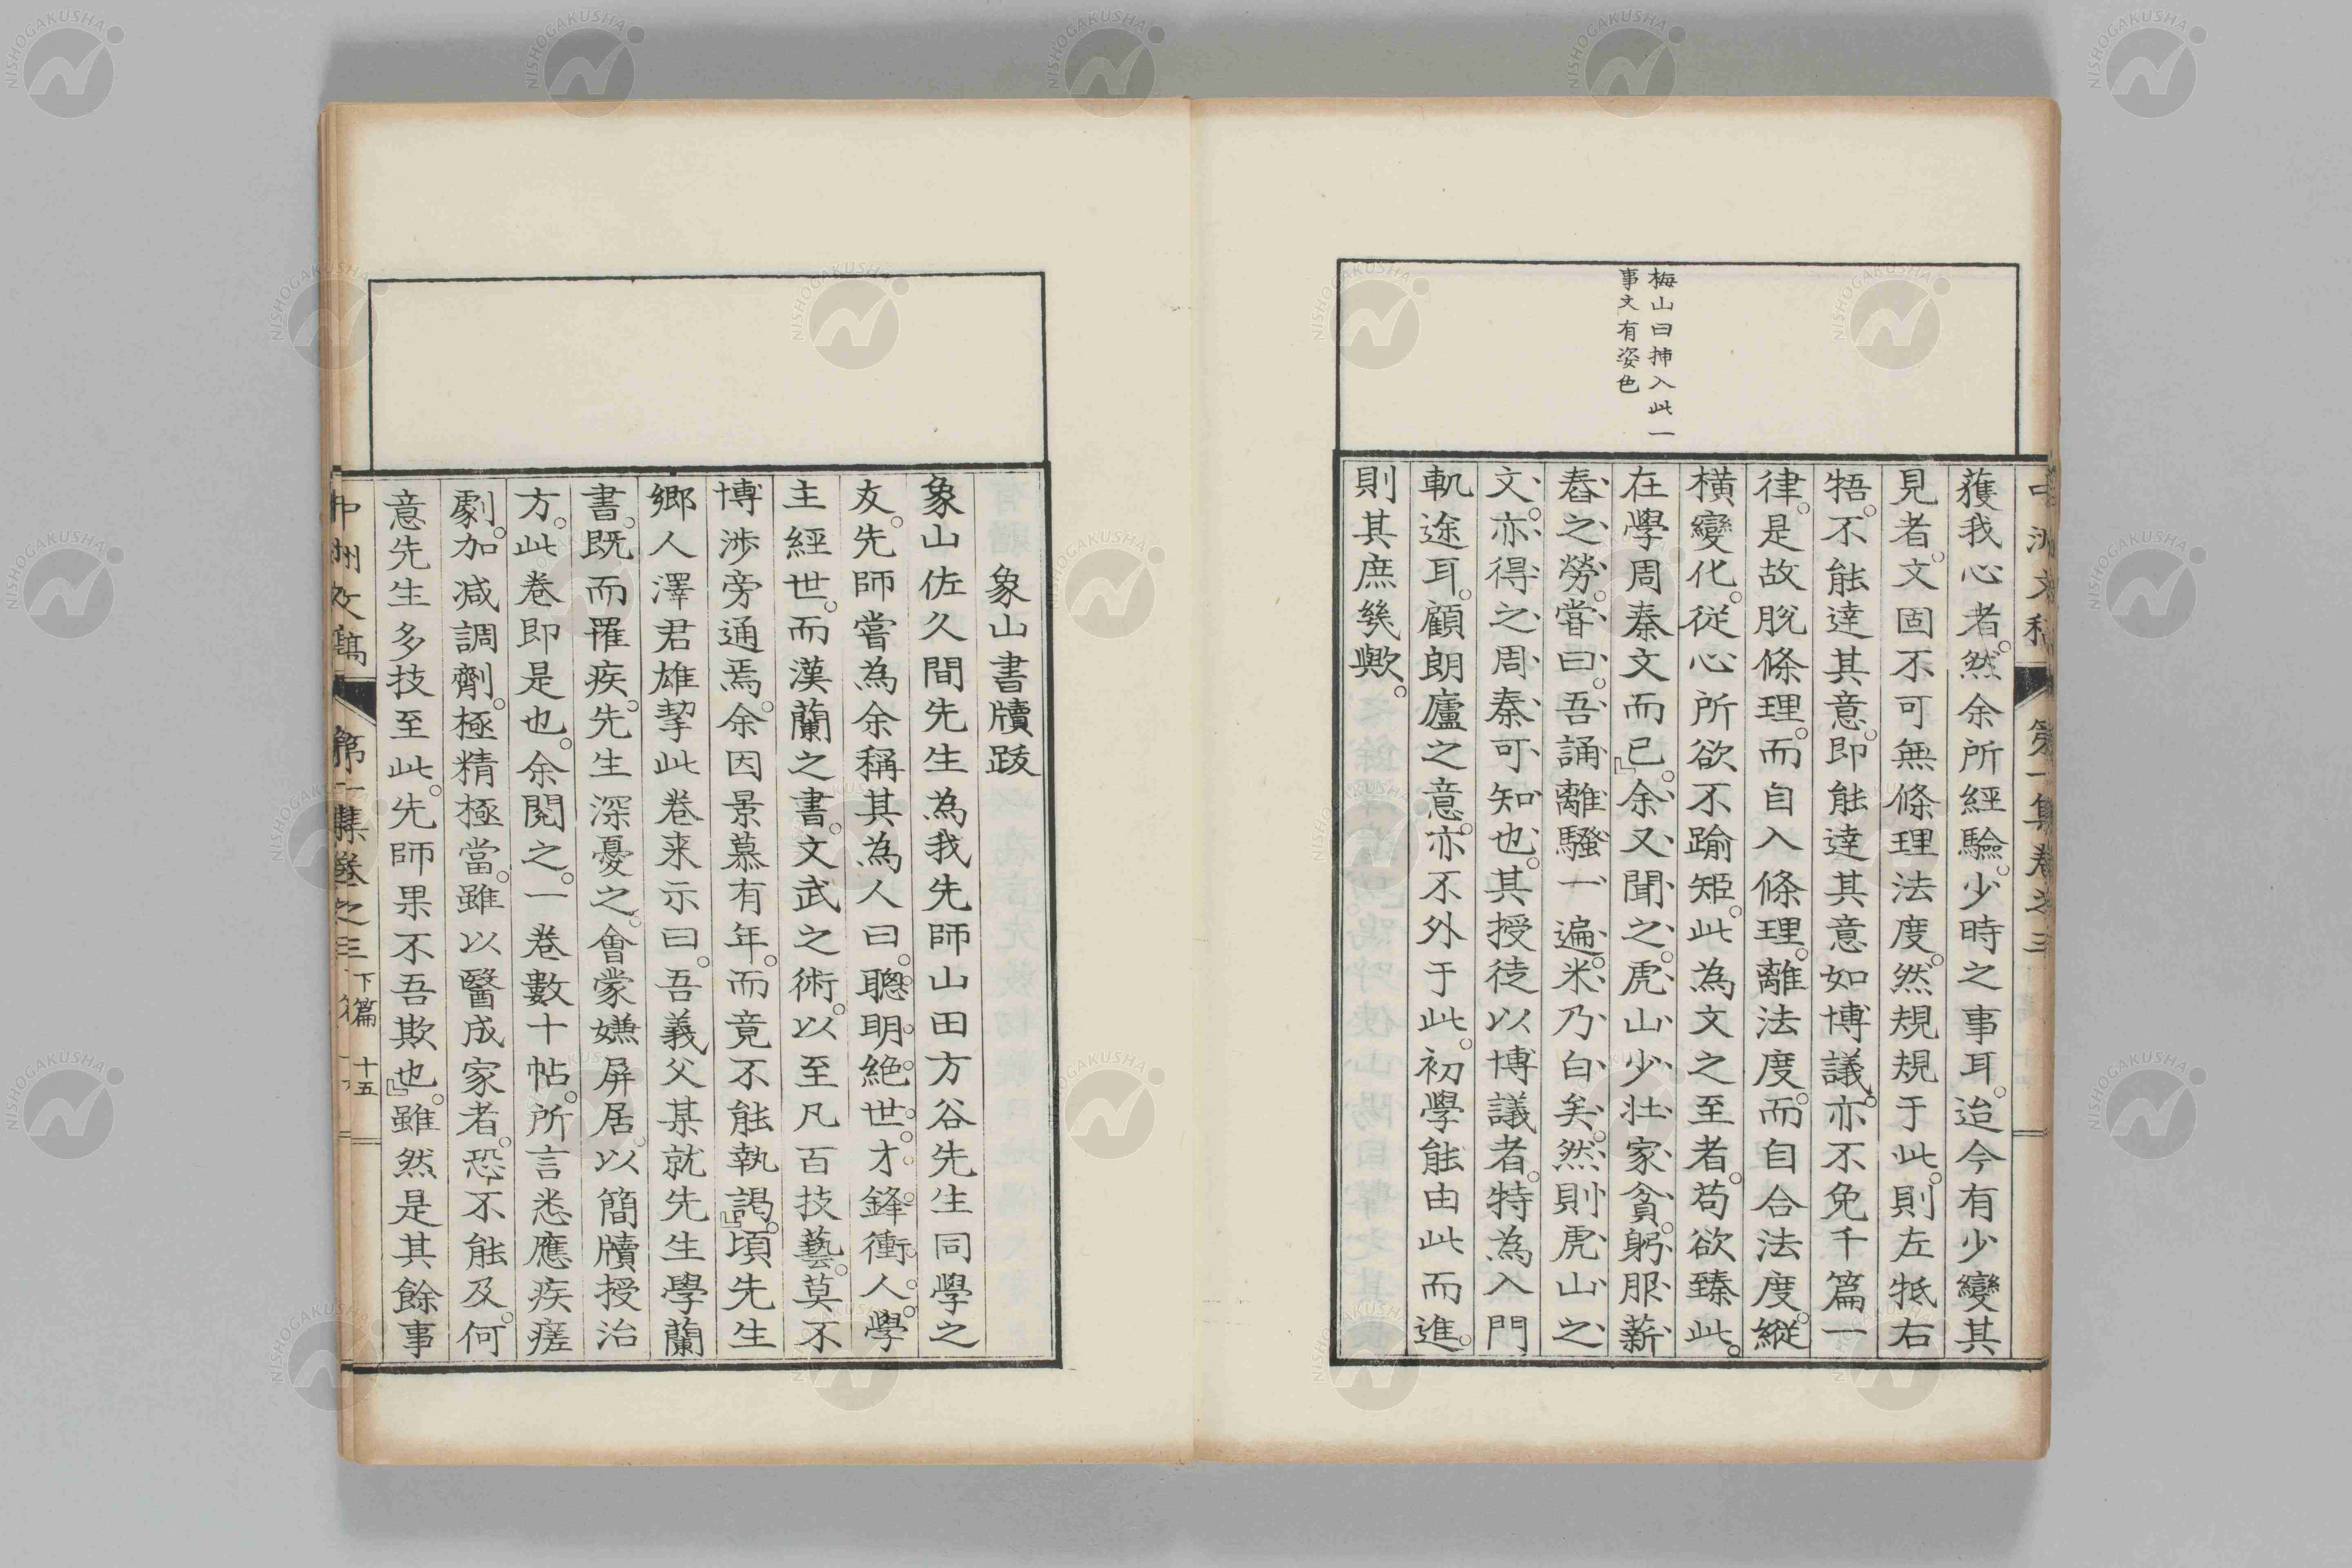 梅山曰挿入此一
事文有姿色
獲我心者。然余所經驗。少時之事耳。迨今有少變其
見者。文固不可無條理法度。然規規于此。則左牴右
牾。不能達其意。即能達其意如博議。亦不免千篇一
律。是故脫條理。而自入條理。離法度。而自合法度。縱
橫變化。從心所欲不踰矩。此為文之至者。苟欲臻此。
在學周秦文而已。』余又聞之。虎山少壯家貧。躬服薪
舂之勞。嘗曰。吾誦離騷一遍。米乃白矣。然則虎山之
文。亦得之周秦可知也。其授徒以博議者。特為入門
軌途耳。顧朗廬之意。亦不外于此。初學能由此而進。
則其庶幾歟。
象山書牘跋
象山佐久間先生為我先師山田方谷先生同學之
友。先師嘗為余稱其為人曰。聰明絕世。才鋒衝人。學
主經世。而漢蘭之書。文武之術。以至凡百技藝。莫不
博涉旁通焉。余因景慕有年。而竟不能執謁。』頃先生
鄉人澤君雄挈此卷来示曰。吾義父某就先生學蘭
書。既而罹疾。先生深憂之。會蒙嫌屏居。以簡牘授治
方。此卷即是也。余閱之。一卷數十帖。所言悉應疾瘥
劇。加减調劑。極精極當。雖以醫成家者。恐不能及。何
意先生多技至此。先師果不吾欺也。』雖然是其餘事
中洲文稿 第一集卷之三 下篇 十五